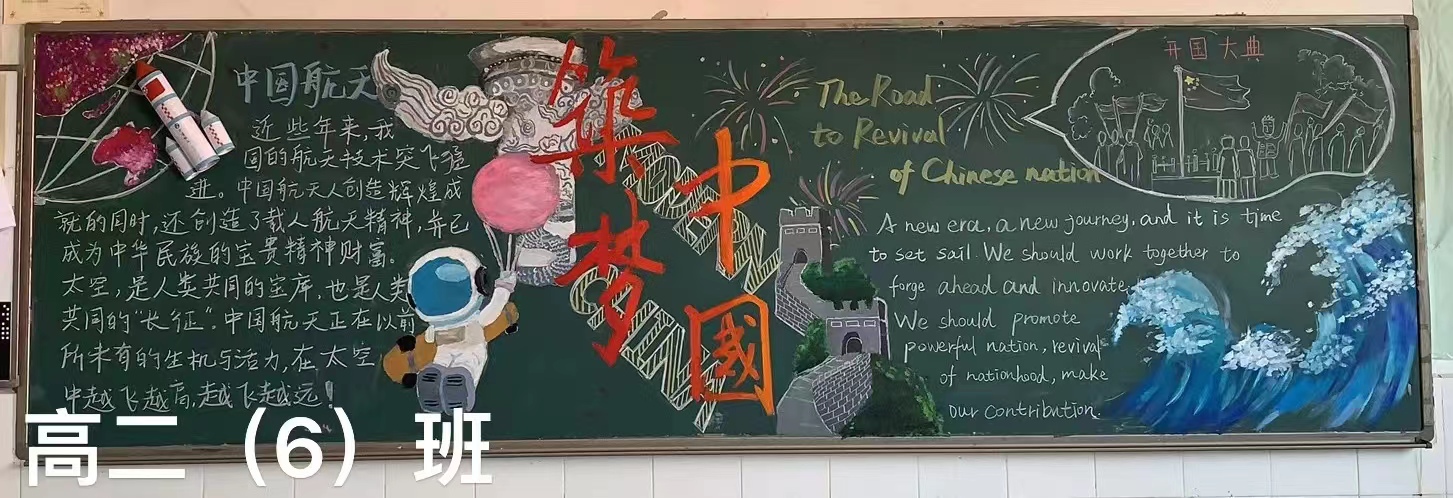 中国航天
近些年来，我
国的航天技术突飞猛
进。中国航天人创造辉煌成
就的同时，还创造了载人航天精神，并已
成为中华民族的宝贵精神财富。
太空，是人类共同的宝库，也是人类
共同的“长征”。中国航天正在以前
所未有的生机与活力，在太空
中越飞越高，越飞越远！
築梦
中國
The Road
to Revival
of Chinese nation
开国大典
A new era, a new journey, and it is time
to set sail. We should work together to
forge ahead and innovate.
We should promote
powerful nation, revival
of nationhood, make
our contribution.
高二（6）班